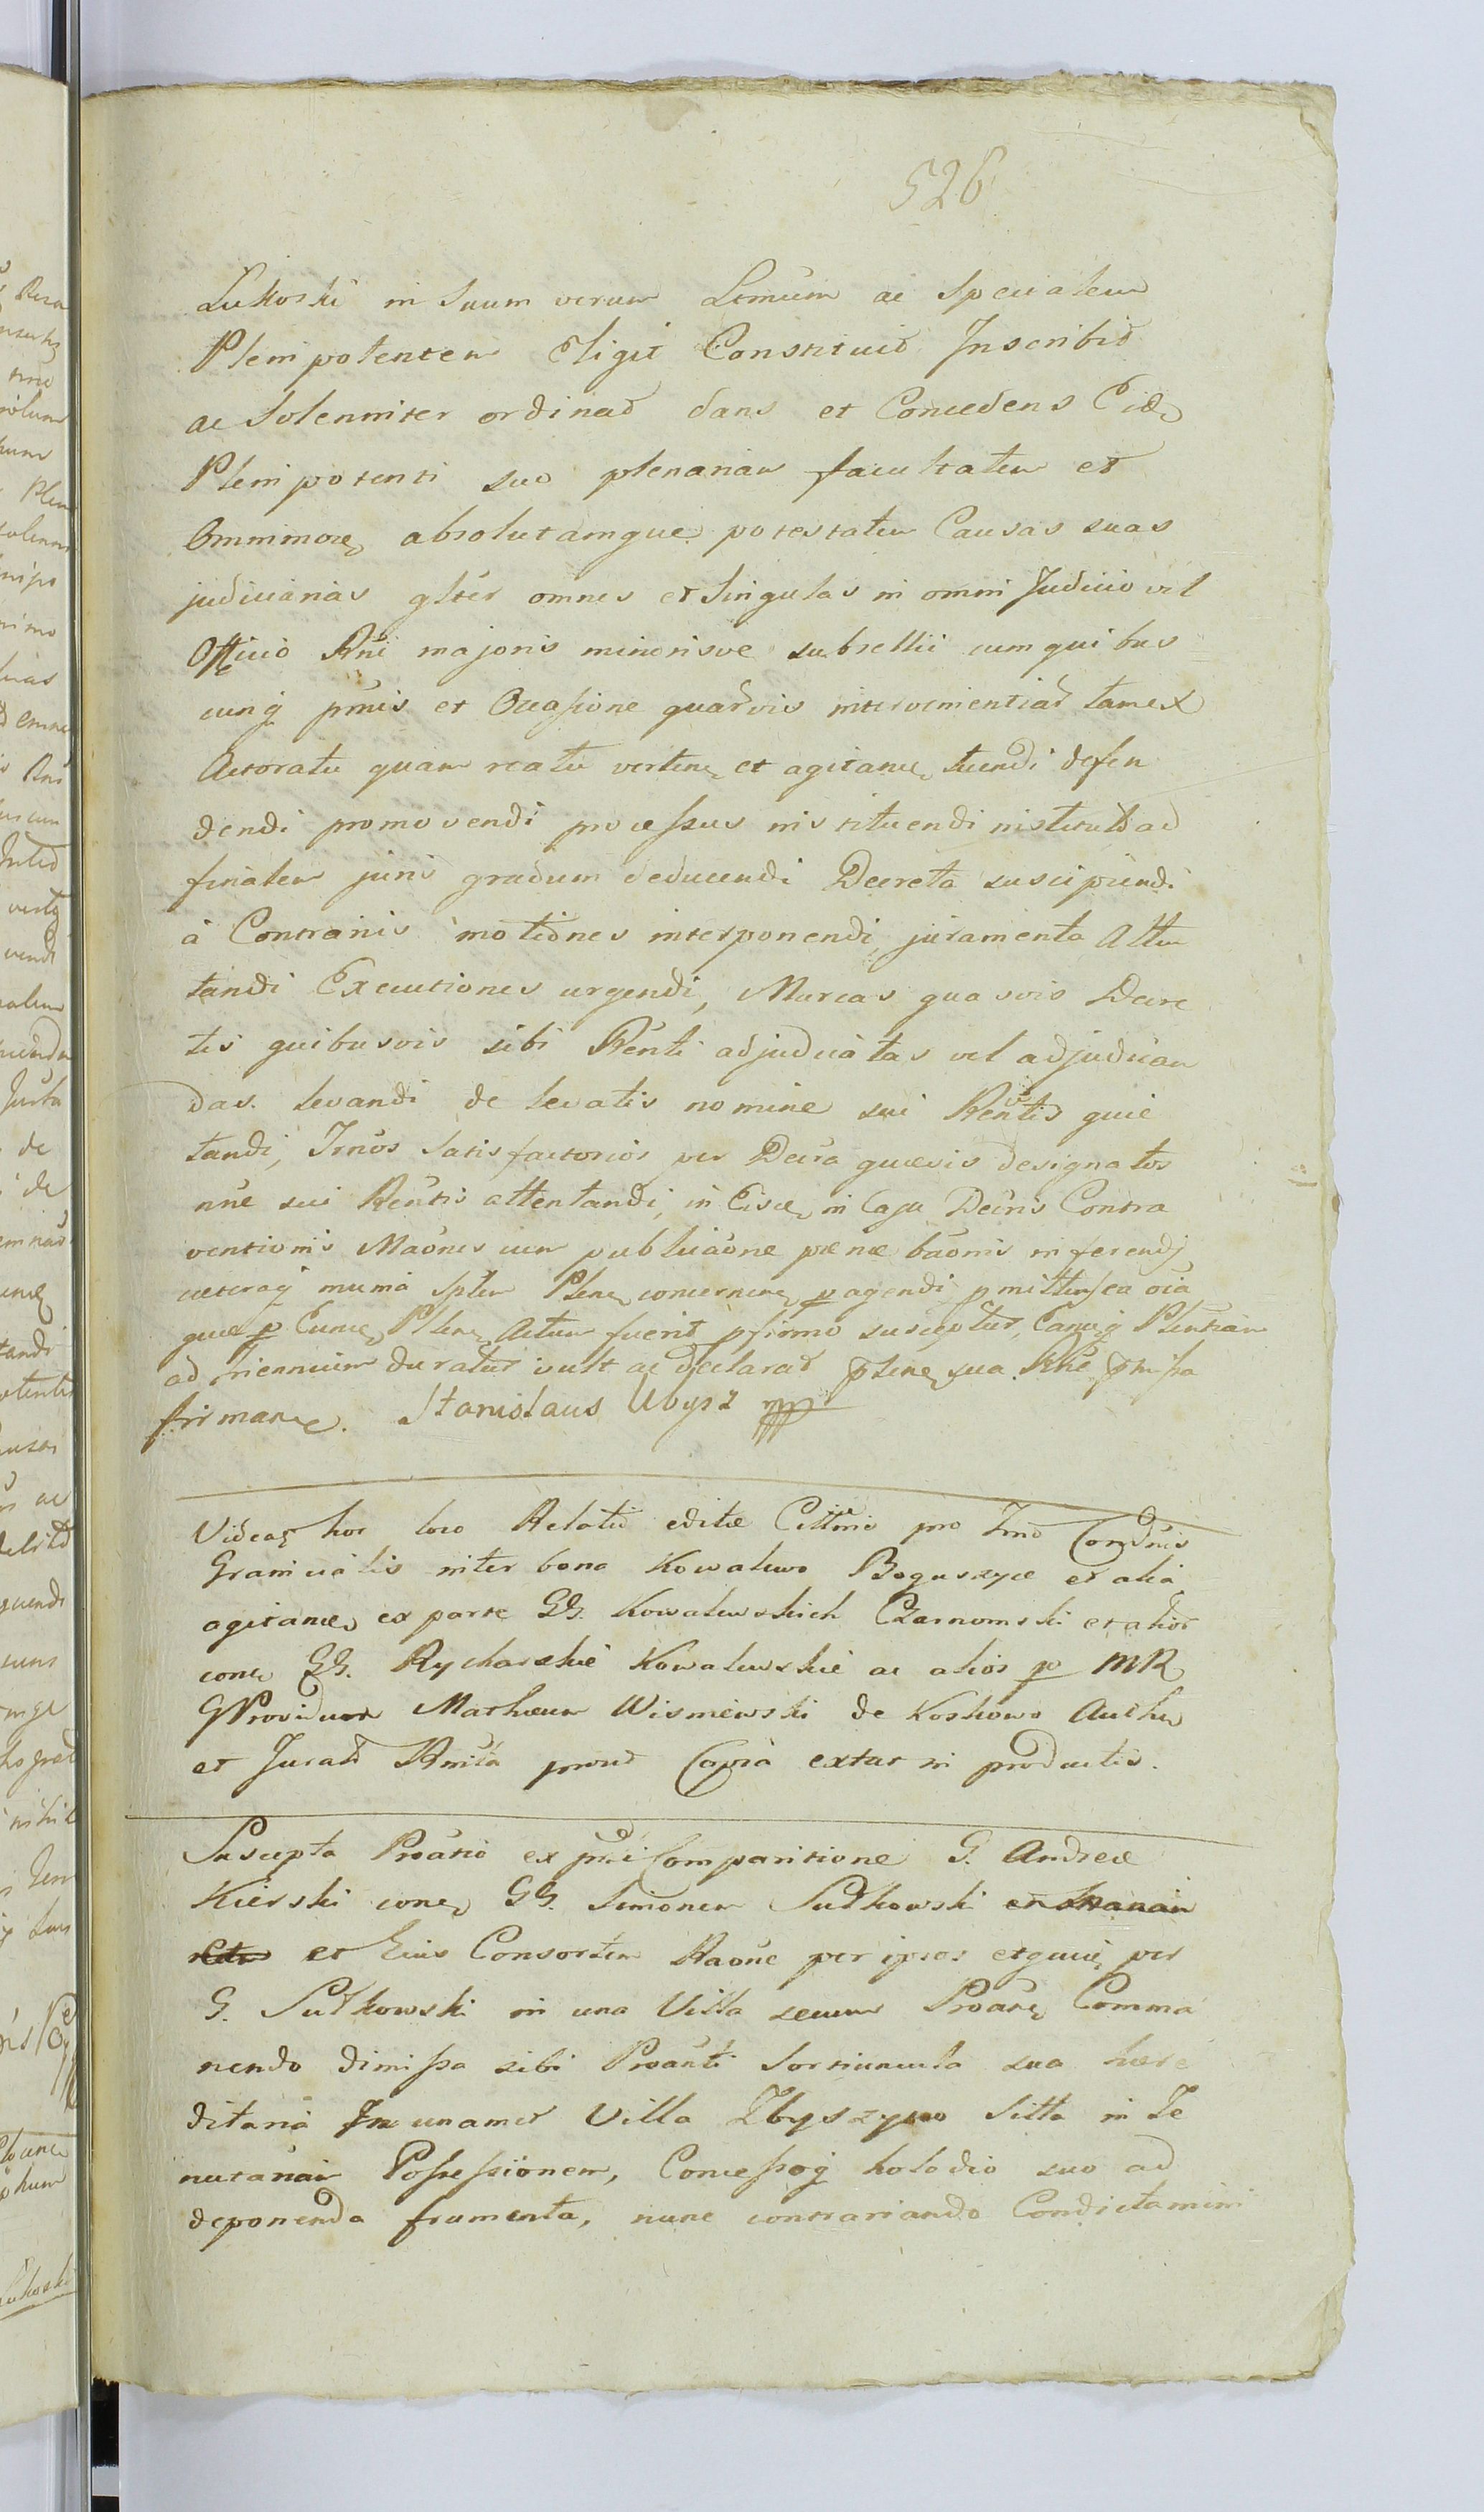 526
Lukoski in Suum verum Lrmum ac Specialem
Plenipotentem Eligit Constituit Inscribit
ac Solenniter ordinat dans et Concedens Eide
Plenipotenti suo plenariam facultatem et
Omnimore absolutamque potestatem Causas suas
judiciarias glter omnes et Singulas in omni Judicio vel
Officio Rni majoris minorisve subsellii cum quibus
cunq pnis et Occasione quarvis intervenientiar tam ex
Actoratu quam reatu verten et agitane tuendi defen
dendi promovendi processus instituendi institutos ad
finalem juris gradum deducendi Decreta suscipiendi
à Contrariis motiones interponendi, juramenta Atten
tandi Executiones urgendi, Mulcas quasvis Decre
tis quibusvis sibi Rénti adjudicatas vel adjudican
das. levandi de levatis nomine sui Réntis quie
tandi, Trnos Satisfactorios per Decra quævis designatos
nne sui Réntis attentandi, in Eisde in Casu Decris Contra
ventionis Maones cum publicaone pænæ baonis inferendi
cæteraq munia Spler Plene concernen pagendi pmittens ea oia
quæ p Eunde Plene Actum fuerit p firmo susceptur, Eanq Plentiam
ad triennium duratur vult ac declarat plene sua. Rhe pmissa
firmane. Stanislaus Ubysz mpp
Videas hoc loco Relatio editæ Cittnis pro Trno Condnis
Granicialis inter bona Kowalewo Boguszyce et alia
agitane ex parte GG. Kowalewskich Czarnomski et alior
cone GG. Rycharskie Kowalewskie ac alios p MR
GProvidum Mathæum Wisniewski de Koskowo Authen
et Jurati Rnita prout Copia extat in productis.
Suscepta Proatio ex pnli Comparitione G. Andreæ
Kierski cone GG. Simonem Sutkowski
et Eius Consortem Raone per ipsos et quie per
G. Sutkowski in una Villa secum Proane Comma
nendo dimissa sibi Proanti Sortiuncula sua hære
ditaria In unamet Villa Zbyszyno Sitta in Te
nutariam Possessionem, Concessoq holodio suo ad
deponenda frumenta, nunc contrariando Condictamini